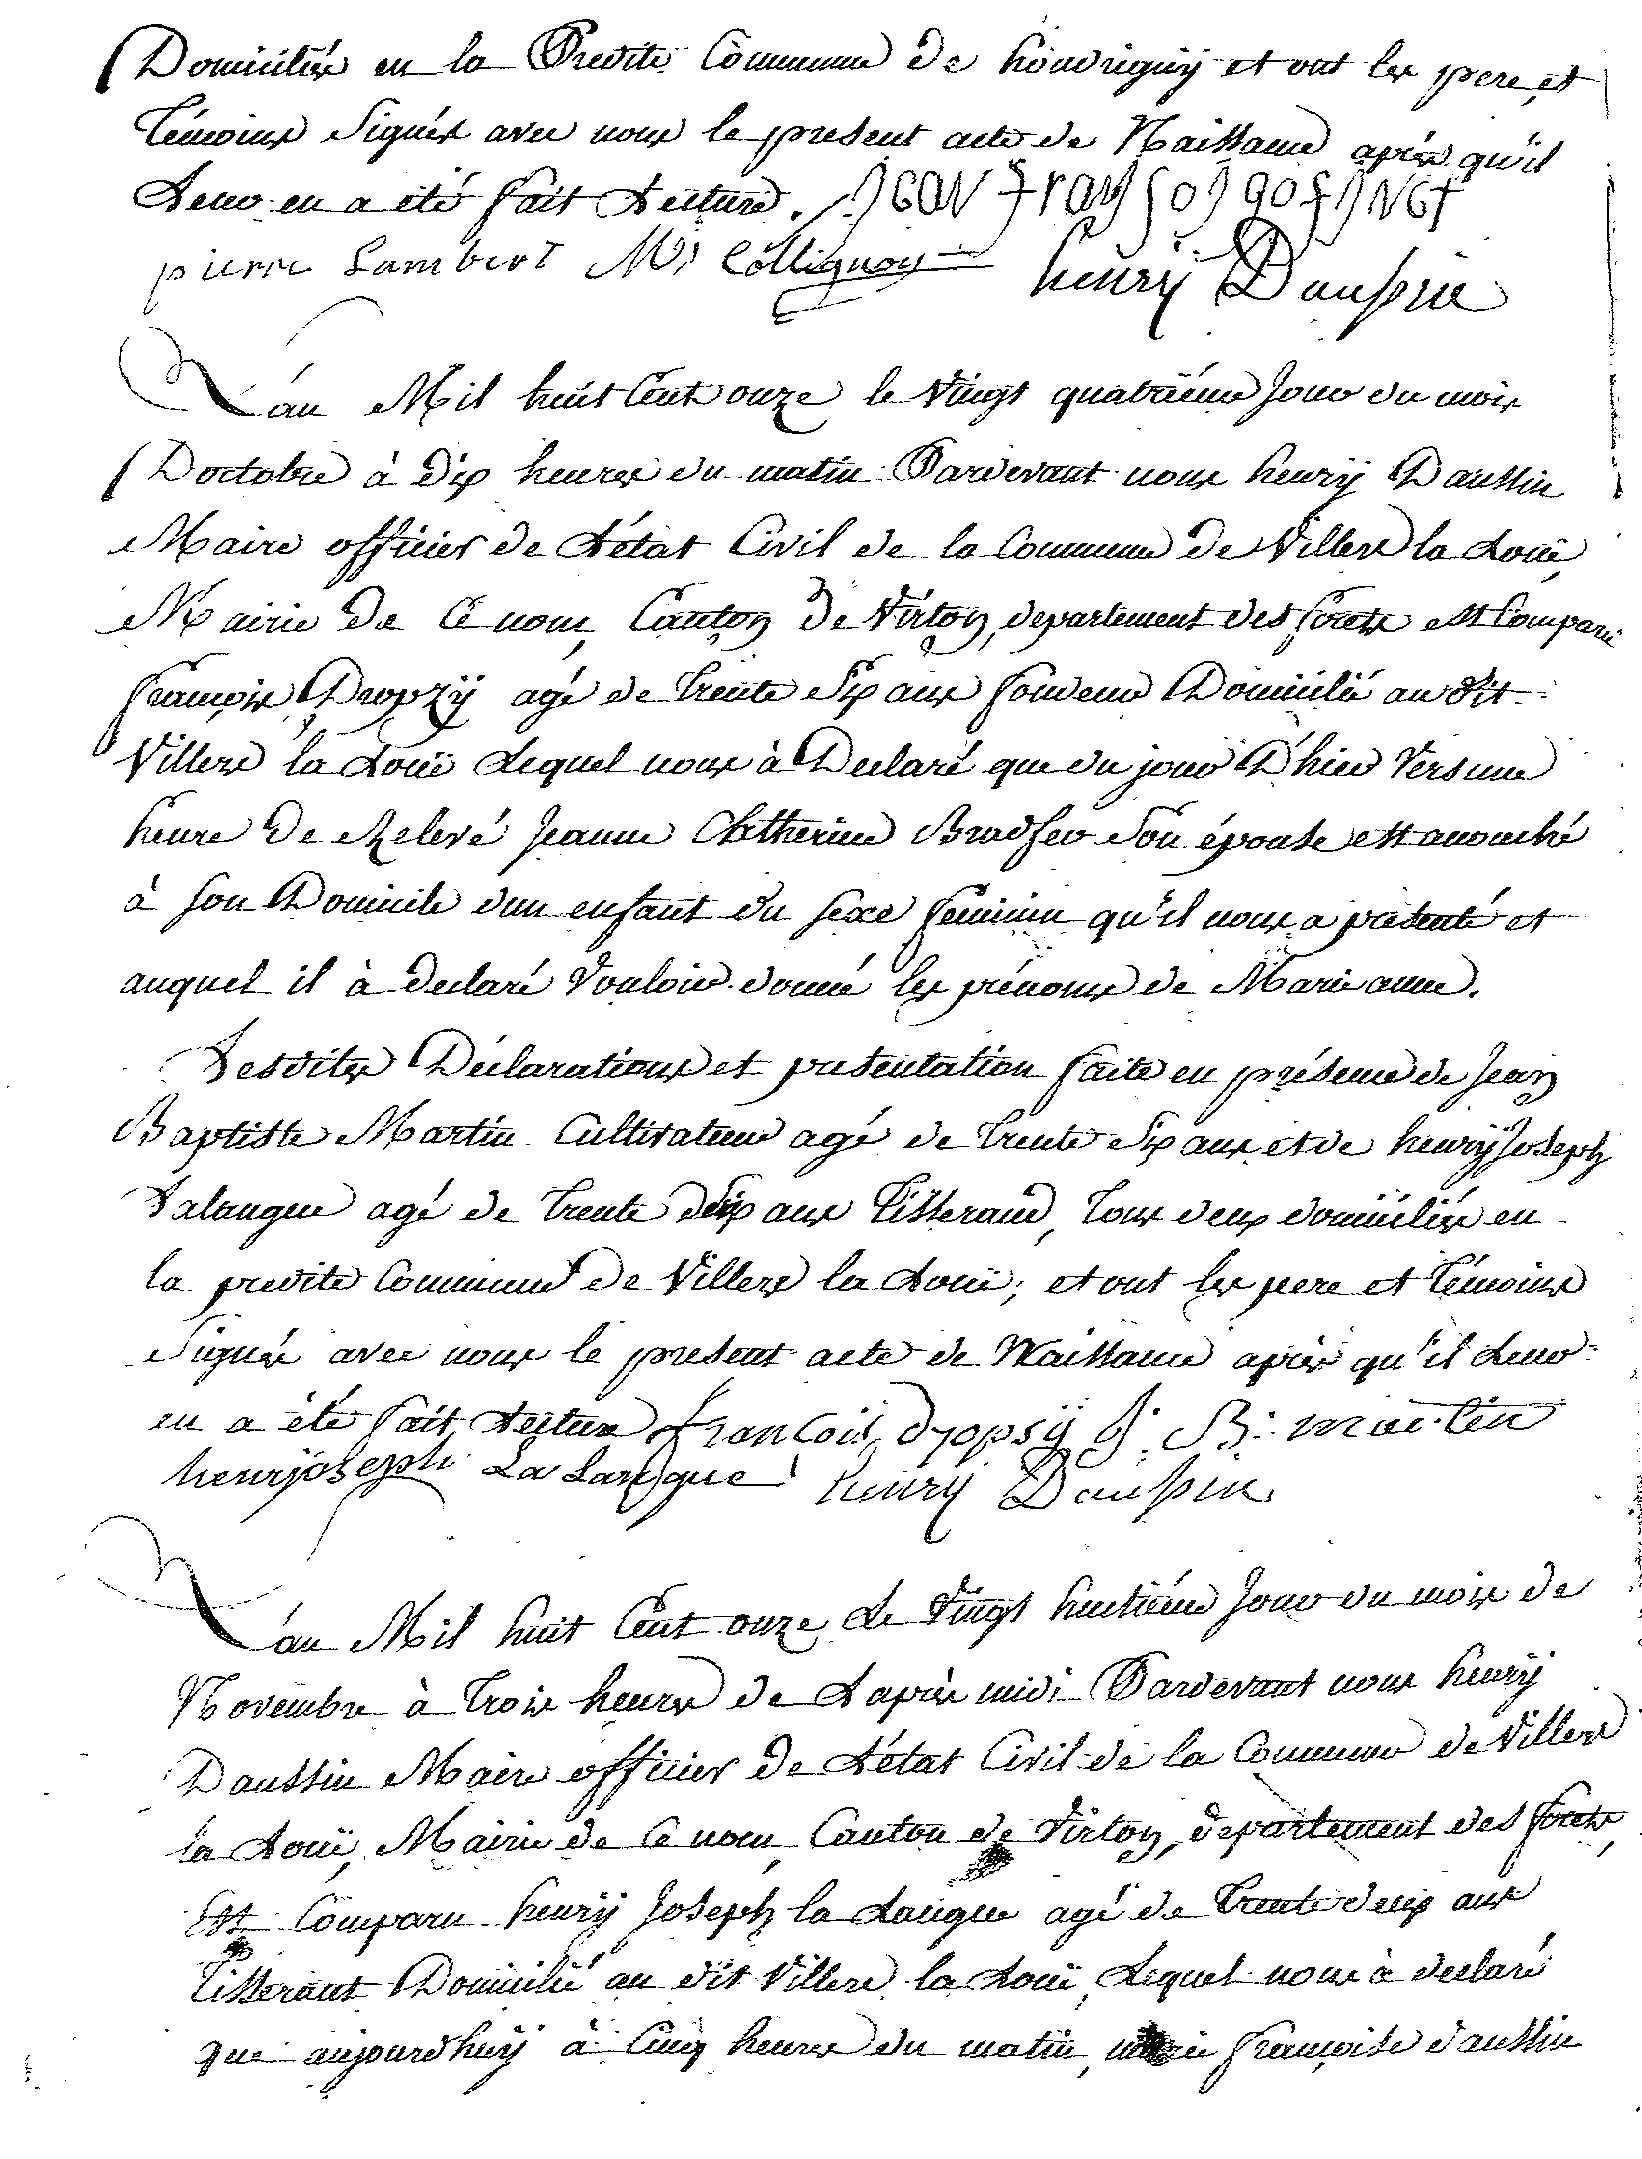 Domiciliés en la Predite Commune de houdrigny et ont les pere et
Témoins Signés avec nous le present acte de Naissance après qu'il
Leur en a été fait Lecture. jean franÿsoi gofinet
pierre Lambert M: Collignon henrÿ Daussin
L'an Mil huit Cent onze le Vingt quatrième Jour du mois
D'octobre à dix heures du matin Pardevant nous henrÿ Daussin
Maire officier de L'état Civil de la Commune de Villers la Loüe,
Mairie de Ce nom, Canton de Virton, departement des forets est Comparu
françois Dropzÿ agé de Trente Six ans Domicilié au dit
Villers la Loüe Lequel nous à Declaré que du jour D'hier Vers une
heure de Relevé Jeanne Catherine Son épouse est accouché
à son Domicile d'un enfant du sexe feminin qu'il nous a presenté et
auquel il à declaré Vouloir donné les prénoms de Marie anne.
Lesdites Déclarations et presentation faite en présence de Jean
Baptiste Martin Cultivateur agé de Trente Six ans et de henrÿ Joseph
Lalangue agé de Trente ans Tisserand, Tous deux domiciliés en
la predite Commune de Villers la Loüe; et ont les pere et Témoins
Signés avec nous le present acte de Naissance après qu'il Leur
en a été fait Lecture françois dropsÿ J: B: martin
henrÿ joseph La Langue henrÿ Daussin
L'an Mil huit Cent onze Le Vingt huitième Jour du mois de
Novembre à Trois heures de L'après midi Pardevant nous henrÿ
Daussin Maire officier de L'état Civil de la Commune de Villers
la Loüe, Mairie de Ce nom, Canton de Virton, departement des forets,
Est Comparu henrÿ Joseph la Langue agé de Trente deux ans
Tisserant Domicilié au dit Villers la Loüe, Lequel nous à declaré
que aujourdhuÿ à Cinq heures du matin, marie françoise daussin